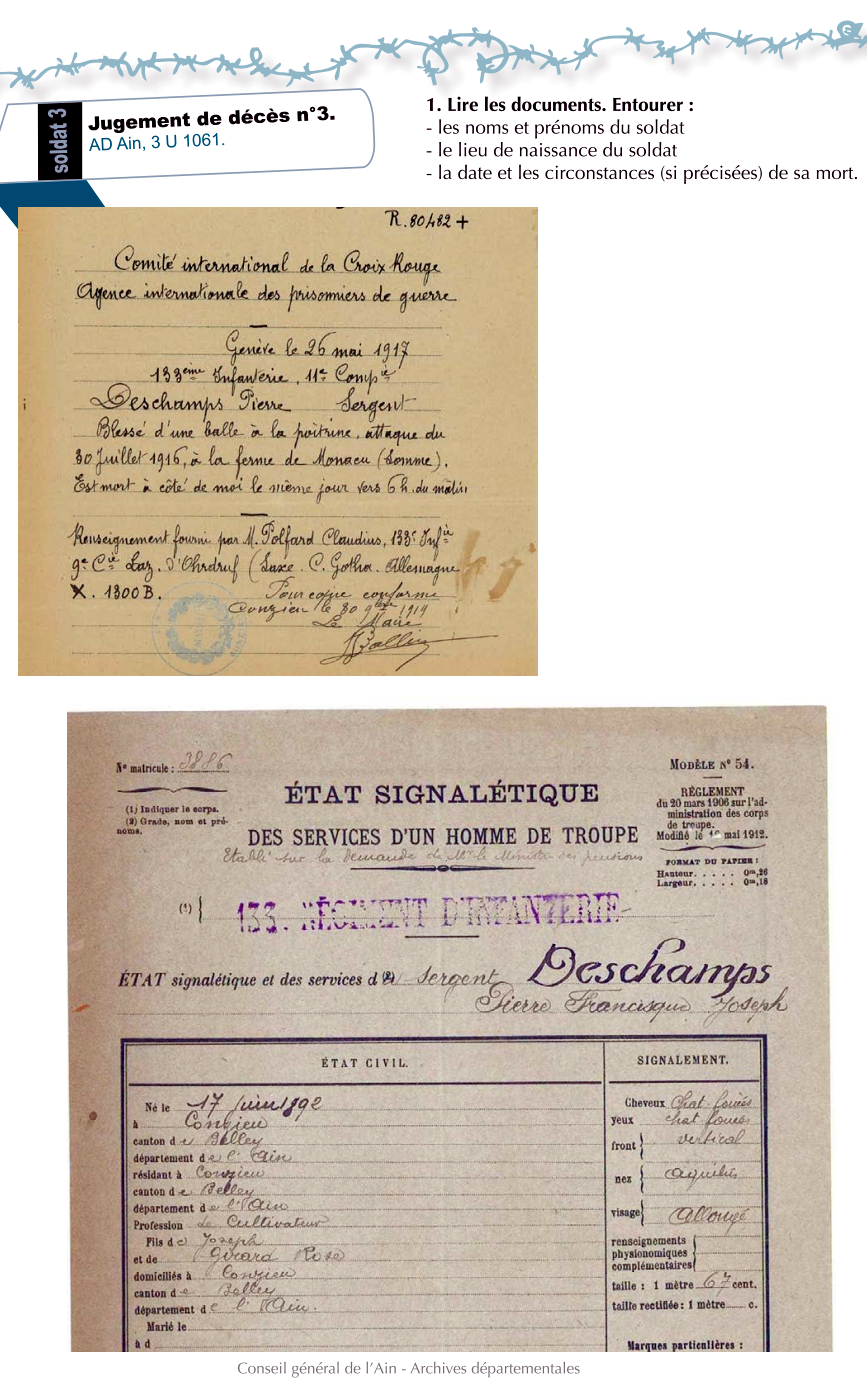 soldat 3
Jugement de décès n°3.
AD Ain, 3 U 1061.
1. Lire les documents. Entourer :
- les noms et prénoms du soldat
- le lieu de naissance du soldat
- la date et les circonstances (si précisées) de sa mort.
R. 80482 +
Comité international de la Croix Rouge
Agence internationale des prisonniers de guerre
Genève le 26 mai 1917
133ème Infanterie, 11e Compie
Deschamps Pierre Sergent
Blessé d'une balle à la poitrine, attaque du
30 Juillet 1916, à la ferme de Monacu (Somme).
Est mort à côté de moi le même jour vers 6 h. du matin
Renseignement fourni par M. Polfard Claudius, 133e Infie
9e Cie Laz. d'Ohrdruf (Saxe. C. Gotha. Allemagne
X. 1300 B.
Pour copie conforme
Conzieu le 30 9bre 1919
Le Maire
N° matricule : 3886
(1) Indiquer le corps.
(2) Grade, nom et pré-
noms.
MODÈLE N° 54.
RÉGLEMENT
du 20 mars 1906 sur l'ad-
ministration des corps
de troupe.
Modifié le mai 1912.
FORMAT DU PAPIER :
Hauteur. . . . . 0m,26
Largeur. . . . . 0m,18
ÉTAT SIGNALÉTIQUE
DES SERVICES D'UN HOMME DE TROUPE
Etabli sur la demande de Mr le Ministre des pensions
(1) 133. RÉGIMENT D'INFANTERIE
ÉTAT signalétique et des services d (2) Sergent Deschamps
Pierre Francisque Joseph
ÉTAT CIVIL.
Né le 17 juin 1892
à Conzieu
canton de Belley
département de l'Ain
résidant à Conzieu
canton de Belley
département de l'Ain
Profession de Cultivateur
Fils de Joseph
et de Girard Rose
domiciliés à Conzieu
canton de Belley
département de l'Ain.
Marié le
à d
SIGNALEMENT.
Cheveux chat. foncés
yeux chat foncés
front vertical
nez aquilin
visage Allongé
renseignements
physionomiques
complémentaires
taille : 1 mètre 67 cent.
taille rectifiée : 1 mètre c.
Marques particulières :
Conseil général de l'Ain - Archives départementales